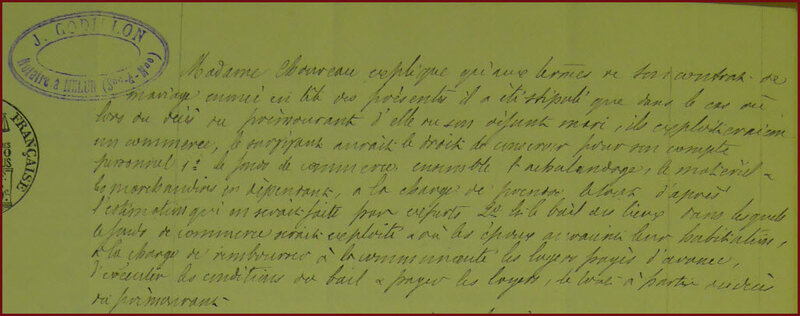 J. GODILLON
Notaire à MELUN (Sne-&-Mne)
FRANÇAISE
Madame Chouveau explique qu'aux termes de son contrat de
mariage énoncé en tête des présentes il a été stipulé que dans le cas où
lors du décès du prémourant d'elle ou son défunt mari, ils exploiteraient
un commerce, le survivant aurait le droit de conserver pour son compte
personnel 1° le fonds de commerce ensemble l'achalandage, le matériel
& les marchandises en dépendant, à la charge de prendre le tout d'après
l'estimation qui en serait faite par experts 2° & le bail des lieux dans lesquels
le fonds de commerce serait exploité & où les époux auraient leur habitation,
à la charge de rembourser à la communauté les loyers payés d'avance,
d'exécuter les conditions du bail & payer les loyers, le tout à partir du décès
du prémourant.